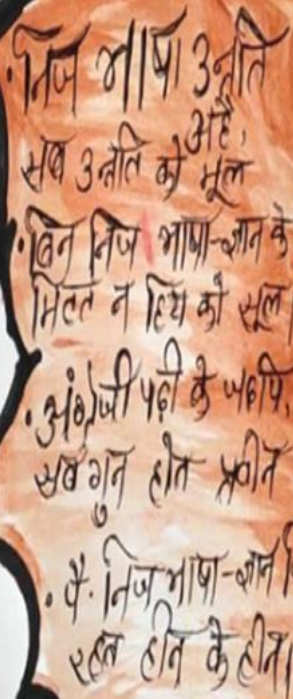 • निज भाषा उन्नति
अहै,
सब उन्नति को मूल
• बिन निज भाषा-ज्ञान के
मिटत न हिय को सूल।
• अंग्रेजी पढ़ी के जदपि,
सब गुन होत प्रवीन
• पै. निज भाषा-ज्ञान
रहत हीन के हीन।